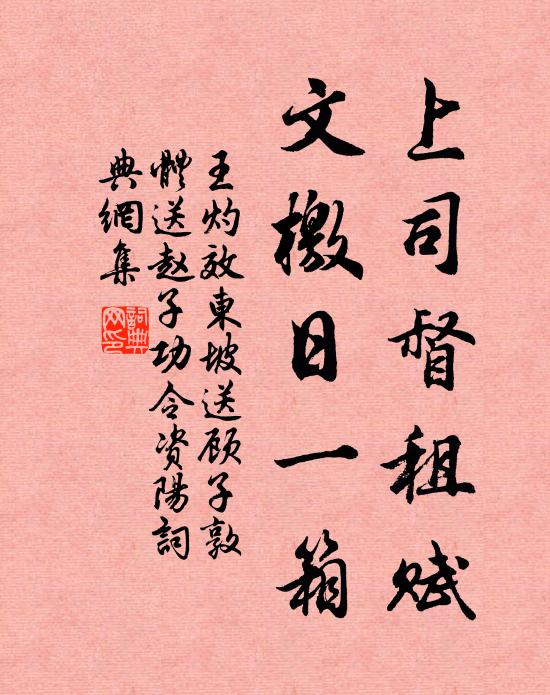 上司督租赋
文檄日一箱
王灼效東坡送顾子敦
體送赵子功令资陽詞
典網集
詞典
网印